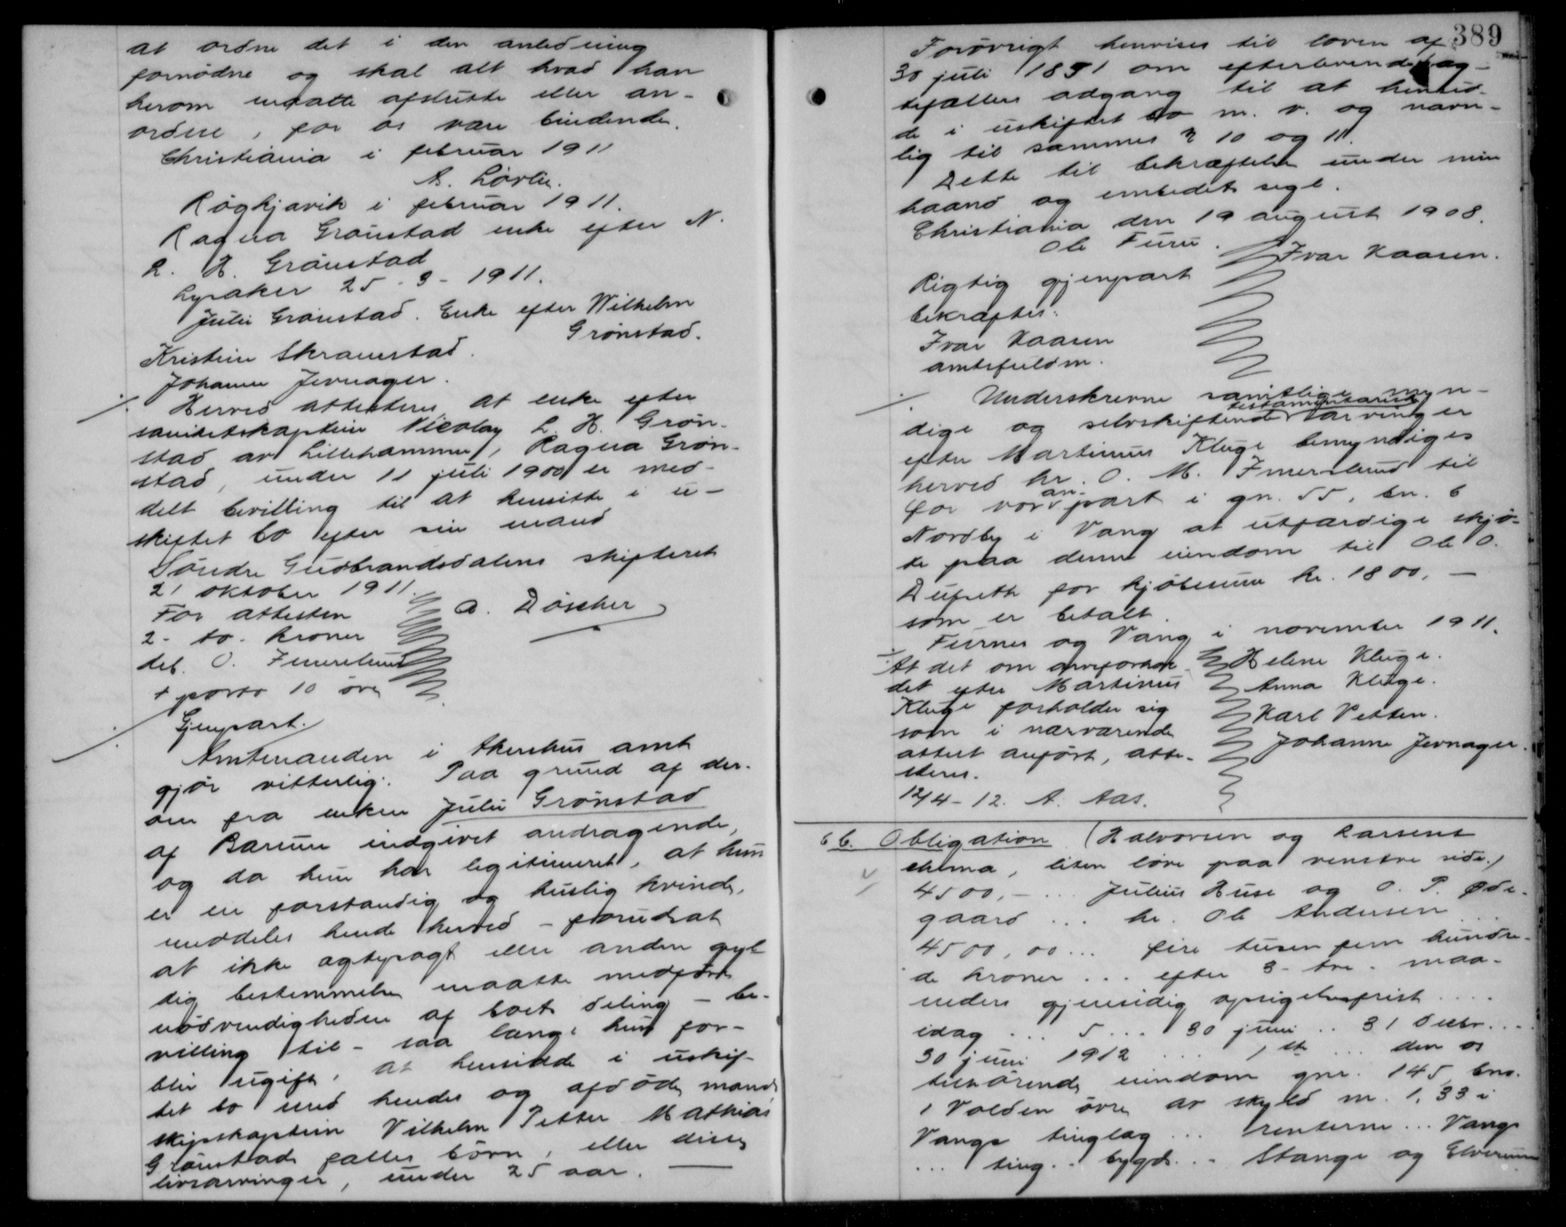 at ordne det i den anledning
fornødne og skal alt hvad han
herom maatte afslutte eller an-
ordne, for os være bindende.
Christiania i februar 1911
A. Løvlie.
Røgkjavik i februar 1911.
Ragna Grønstad enke efter N.
L. H. Grønstad
Lysaker 25-3-1911.
Julie Grønstad. Enke efter Wilhelm
Grønstad.
Kristine Skramstad.
Johanne Jevnager.
Herved attesteres at enke efter
sanitetskaptein Nicolay L. H. Grøn-
stad av Lillehammer, Ragna Grøn-
stad, under 11 juli 1900 er med-
delt bevilling til at hensitte i u-
skiftet bo efter sin mand
Søndre Gudbrandsdalens skifteret
21 oktober 1911.
For attesten A. Döscher
2-to-kroner
bet. O. Imerslund
+ porto 10 øre
Gjenpart.
Amtmanden i Akershus amt
gjør vitterlig: Paa grund af der-
om fra enken Julie Grønstad
af Bærum indgivet andragende,
og da hun har legitimeret, at hun
er en forstandig og huslig kvinde,
meddeles hende herved - forudsat
at ikke ægtepagt eller anden gyl
dig bestemmelse maatte medføre
nødvendigheden af boets deling - be-
villing til - saa længe hun for-
blir ugift, at hensidde i uskif-
tet bo med hendes og afdøde mands
skipskaptein Vilhelm Petter Mathias
Grønstads fælles børn, eller disses
livsarvinger, under 25 aar.
389
Forøvrigt henvises til loven af
30 juli 1851 om efterlevende æg-
tefællers adgang til at hensid-
de i uskiftet bo m. v. og navn-
lig til sammes § 10 og 11.
Dette til bekræftelse under min
haand og embedets segl.
Christiania den 19 august 1908.
Ole Furu.
Ivar Kaasen.
Rigtig gjenpart
bekræftes:
Ivar Kaasen
amtsfuldm.
Underskrevne samtlige myn-
testamentariske
dige og selvskiftende arvinger
efter Martinus Kluge bemyndiges
herved hr. O. M. Imerslund til
an-
for vor part i gn. 55, bn. 6
Nordby i Vang at utfærdige skjø-
te paa denne eiendom til Ole O.
Dufseth for kjøbesum kr. 1800,-
som er betalt.
Furnes og Vang i november 1911.
At det om arveforhol-
det efter Martinus
Kluge forholder sig
som i nærværende
attest anført, atte-
steres.
12/4-12. A. Aas.
Helene Kluge.
Anna Kluge.
Karl Vetten.
Johanne Jevnager.
66. Obligation (Halvorsen og Larsens
skema, liten løve paa venstre side.)
4500,- ... Julius Huse og O. P. Øde-
gaard ... hr. Ole Andersen ...
4500,00 ... fire tusen fem hundre-
de kroner ... efter 3-tre- maa-
neders gjensidig opsigelsesfrist ....
idag ... 5 ... 30 juni .. 31 decbr. ...
30 juni 1912 .... 1ste ... den os
tilhørende eiendom gnr. 145, bno.
1 Volden øvre av skyld m. 1,33 i
Vangs tinglag ... renterne ... Vangs
... ting .. bygds ... Stange og Elverum